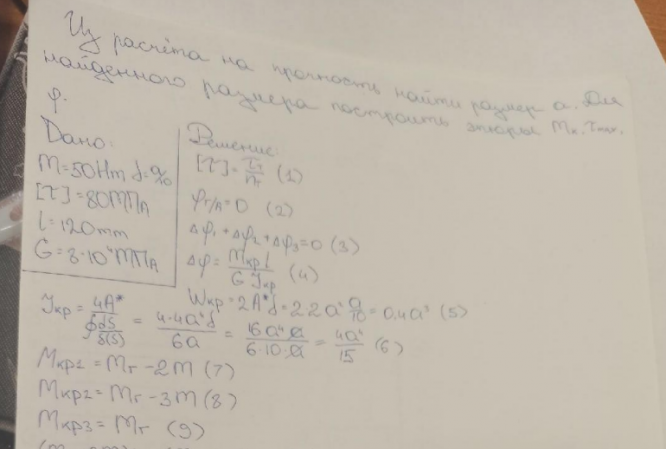 Из расчёта на прочность найти размер a. Для
найденного размера построить эпюры Mк, τmax,
φ.
Дано:
M=50Нm δ=a/10
[τ]=80МПа
l=120mm
G=8·10⁴МПа
Решение:
[τ]=τт/nт (1)
φг/A=0 (2)
Δφ₁+Δφ₂+Δφ₃=0 (3)
Δφ=Mкр l/G Jкр (4)
Wкр=2A*δ=2·2a² a/10=0,4a³ (5)
Jкр=4A*²/∮ds/δ(s)=4·4a⁴δ/6a=16a⁴·a/6·10·a=4a⁴/15 (6)
Mкр1=Mг-2m (7)
Mкр2=Mг-3m (8)
Mкр3=Mг (9)